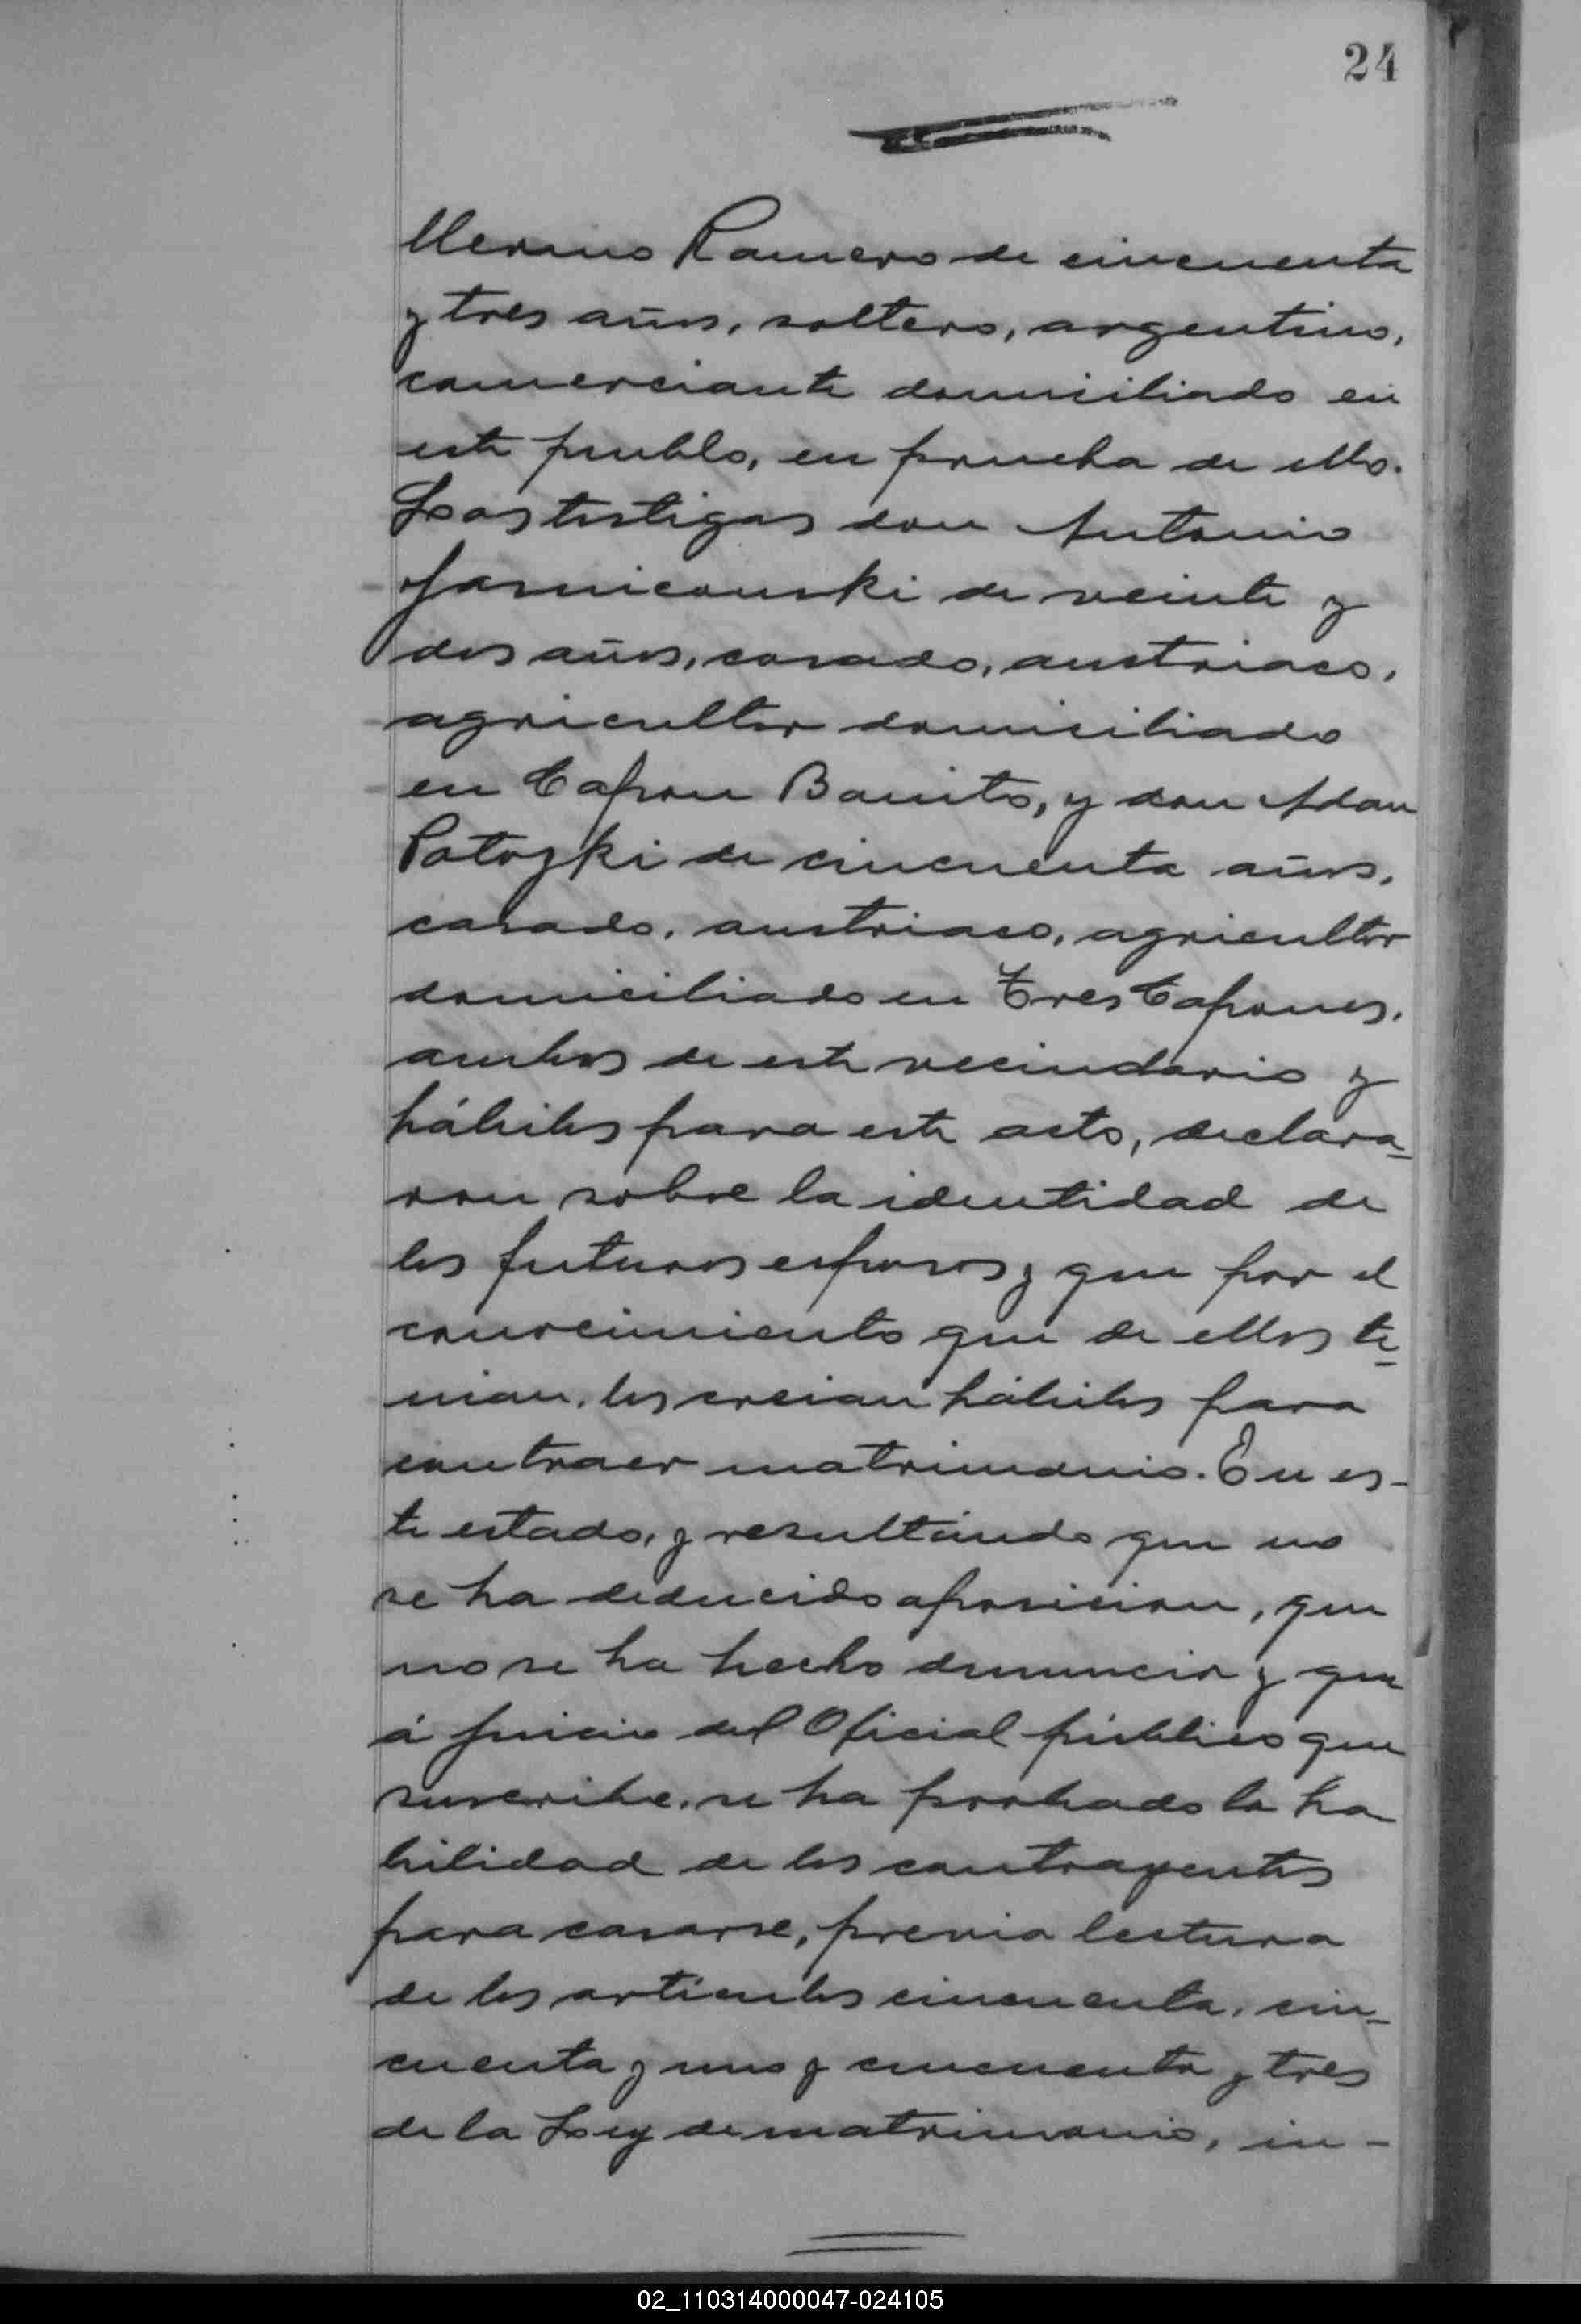 24
Merino Ramero de cincuenta
y tres años, soltero, argentino,
comerciante domiciliado en
este pueblo, en prueba de ello.
Los testigos don Antonio
Jasnicouski de veinte y
dos años, casado, austriaco,
agricultor domiciliado
en Capon Bonito, y don Adan
Potozki de cincuenta años,
casado, austriaco, agricultor
domiciliado en Tres Capones,
ambos de este vecindario y
hábiles para este acto, declara-
ron sobre la identidad de
los futuros esposos y que por el
conocimiento que de ellos te-
nian, los creian hábiles para
contraer matrimonio. En es-
te estado, y resultándo que no
se ha deducido oposicion, que
no se ha hecho denuncia y que
á juicio del Oficial público que
suscribe, se ha probado la ha
bilidad de los contrayentes
para casarse, prévia lectura
de los artículos cincuenta, cin-
cuenta y uno y cincuenta y tres
de la Ley de matrimonio, in-
02_110314000047-024105